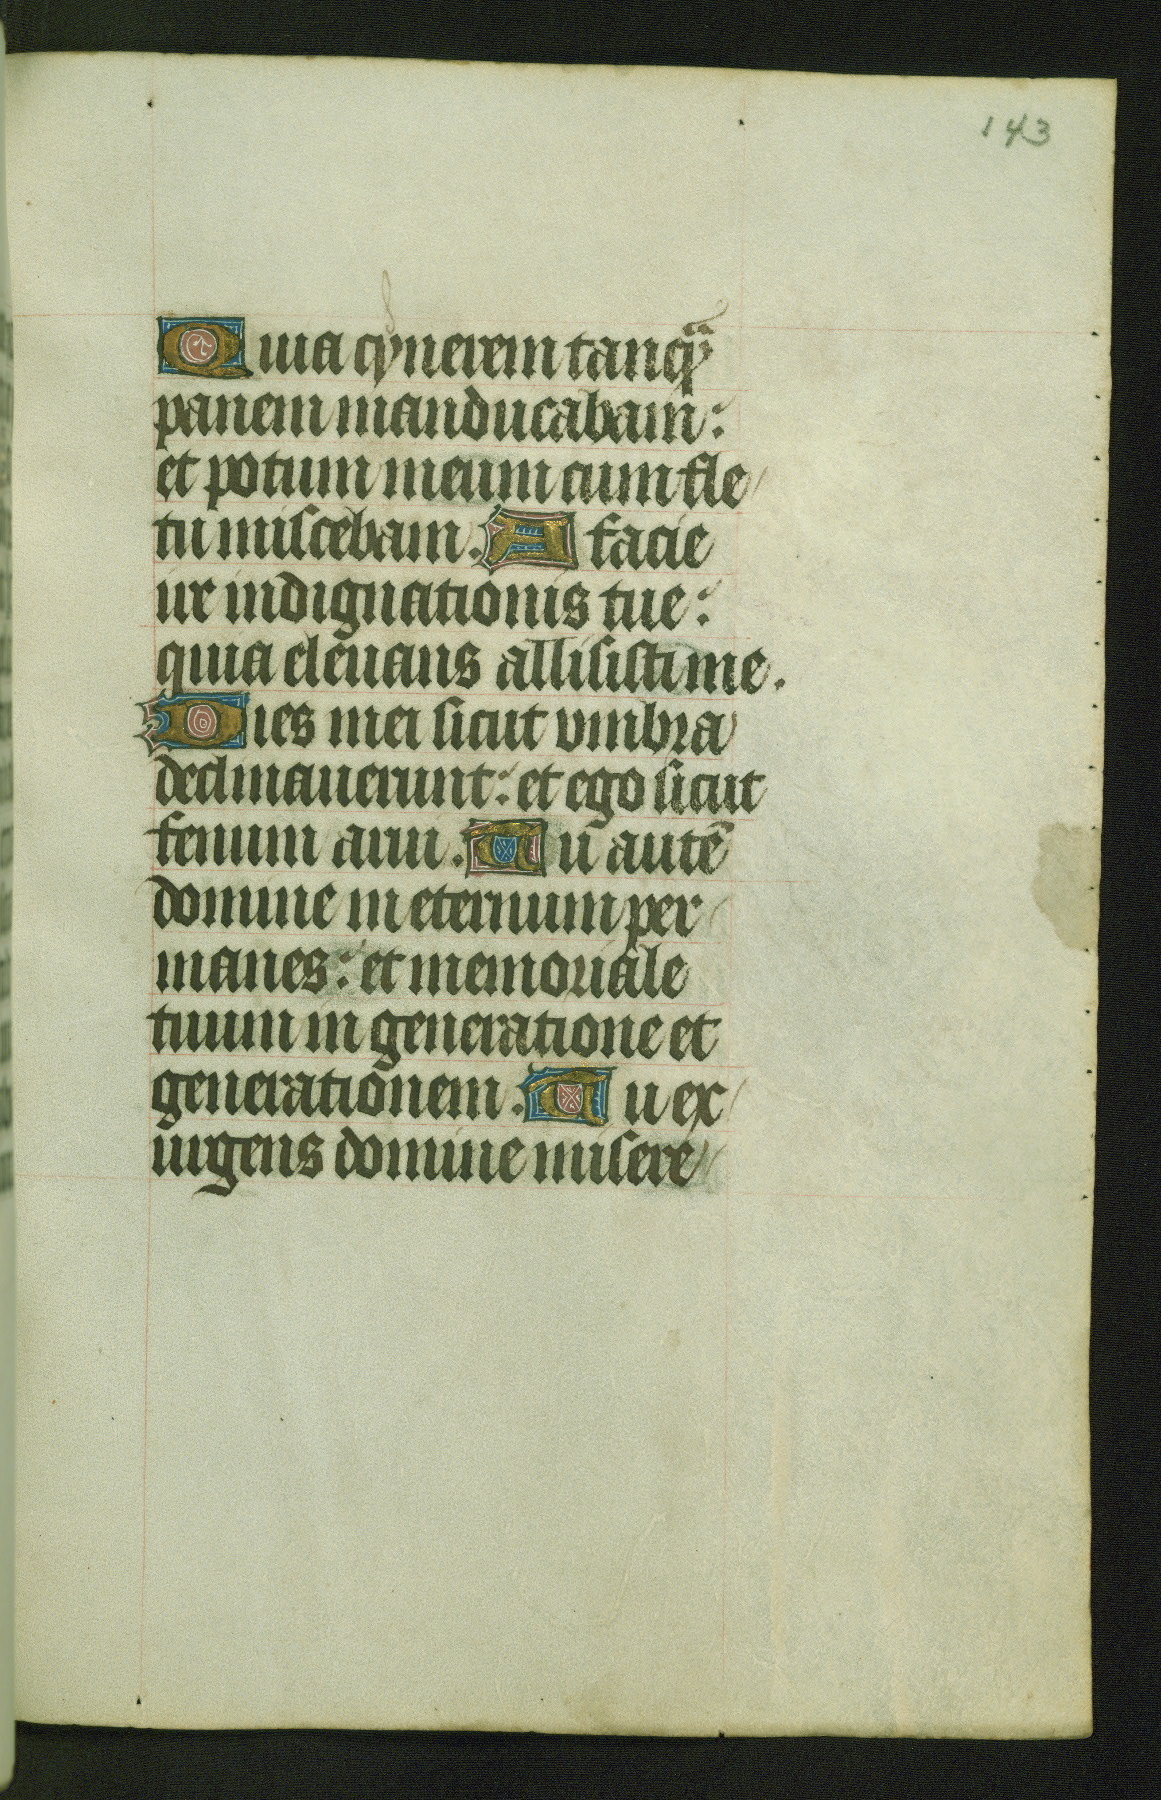 143
Quia cynerem tanq̃
panem manducabam:
et potum meum cum fle
tu miscebam. A facie
ire indignationis tue:
quia eleuans allisisti me.
Dies mei sicut vmbra
declinauerunt: et ego sicut
fenum arui. Tu autē
domine in eternum per
manes: et memoriale
tuum in generatione et
generationem. Tu ex
urgens domine misere